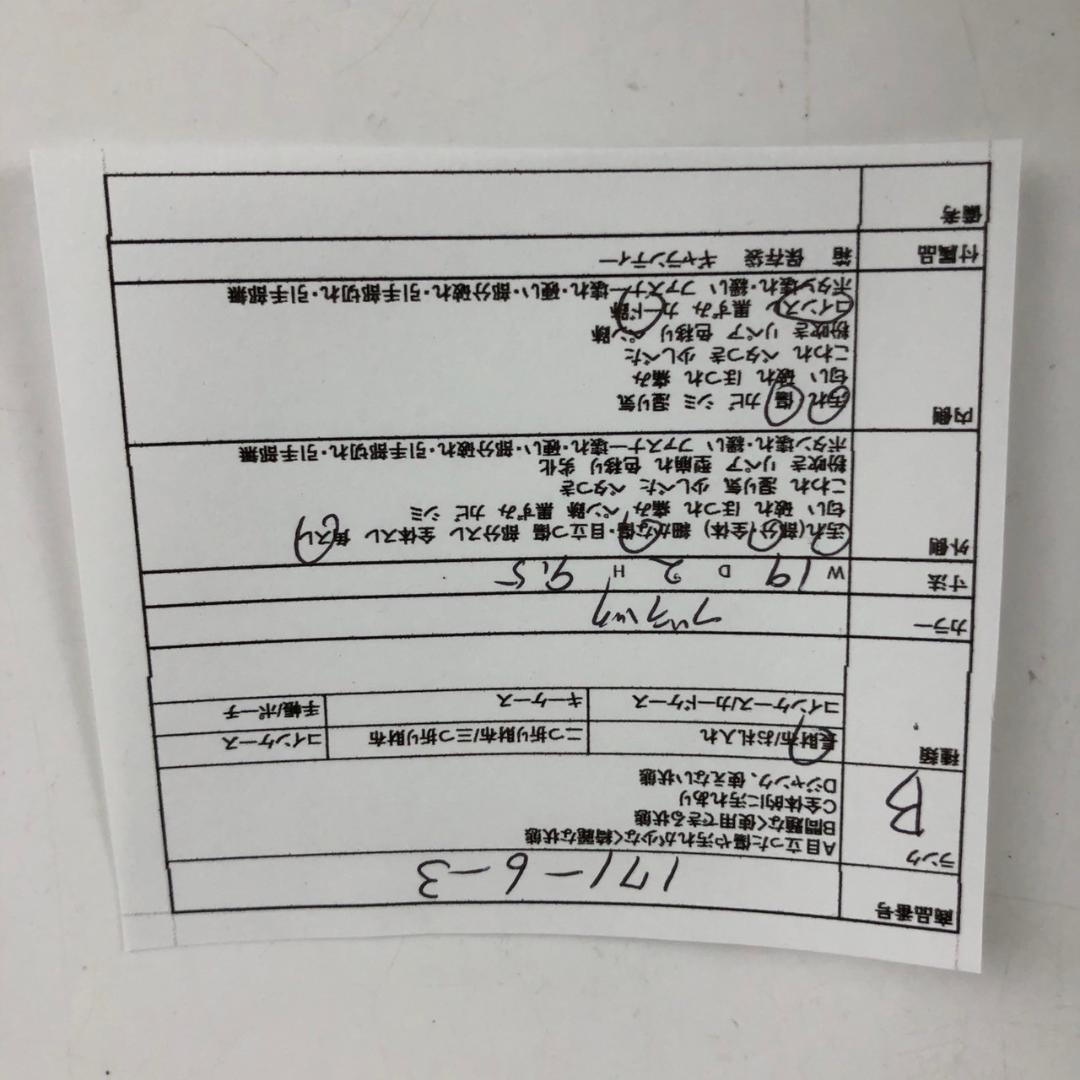 商品番号 171-6-3
ランク B
A目立った傷や汚れが少なく綺麗な状態
B問題なく使用できる状態
C全体的に汚れあり
Dジャンク、使えない状態
種類 長財布/お札入れ 二つ折り財布/三つ折り財布 コインケース
コインケース/カードケース キーケース 手帳/ポーチ
カラー ブラック
寸法 W 19 D 2 H 9.5
外側 汚れ(部分/全体) 細かな傷・目立つ傷 部分スレ 全体スレ 角スレ
匂い 破れ ほつれ 痛み ペン跡 黒ずみ カビ シミ
こわれ 湿り気 少しべた ベタつき
粉吹き リペア 型崩れ 色移り 劣化
ボタン壊れ・緩い ファスナー壊れ・硬い・部分破れ・引手部切れ・引手部無
内側 汚れ 傷 カビ シミ 湿り気
匂い 破れ ほつれ 痛み
こわれ ベタつき 少しべた
粉吹き リペア 色移り ペン跡
コインスレ 黒ずみ カード跡
ボタン壊れ・緩い ファスナー壊れ・硬い・部分破れ・引手部切れ・引手部無
付属品 箱 保存袋 ギャランティー
備考